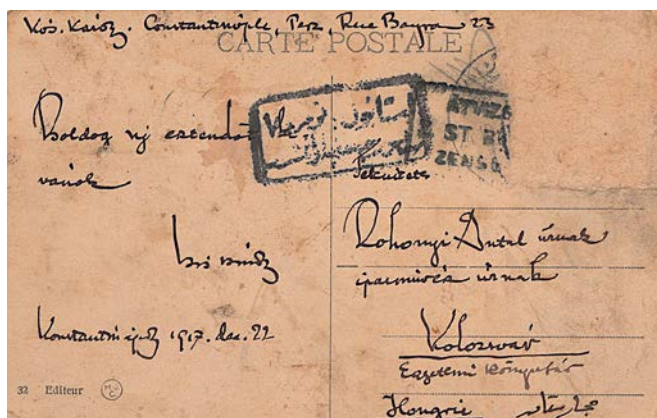 Kós Károly. Constantinople, Pera, Rue Bayram 23
CARTE POSTALE
Boldog új esztendőt
kívánok
Kós Károly
Konstantinápoly 1917. dec. 22
32 Editeur
Tekintetes
Rohonyi Antal úrnak
iparművész úrnak
Kolozsvár
Egyetemi Könyvtár
Hongrie